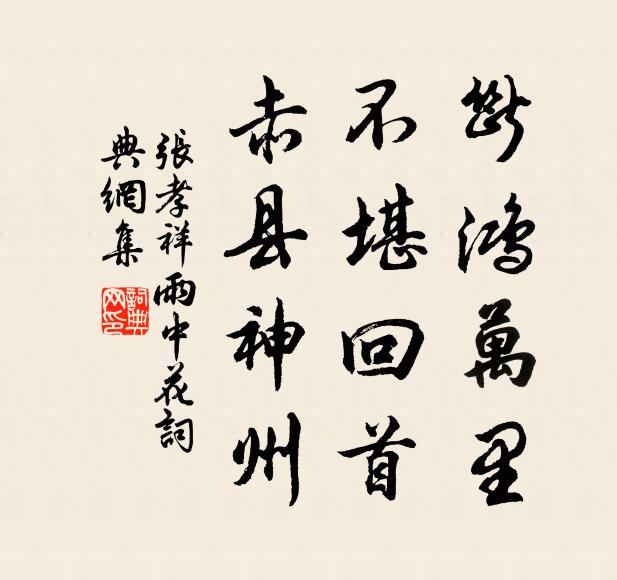 斷鴻萬里
不堪回首
赤县神州
張孝祥雨中花詞
典網集
詞典
网印